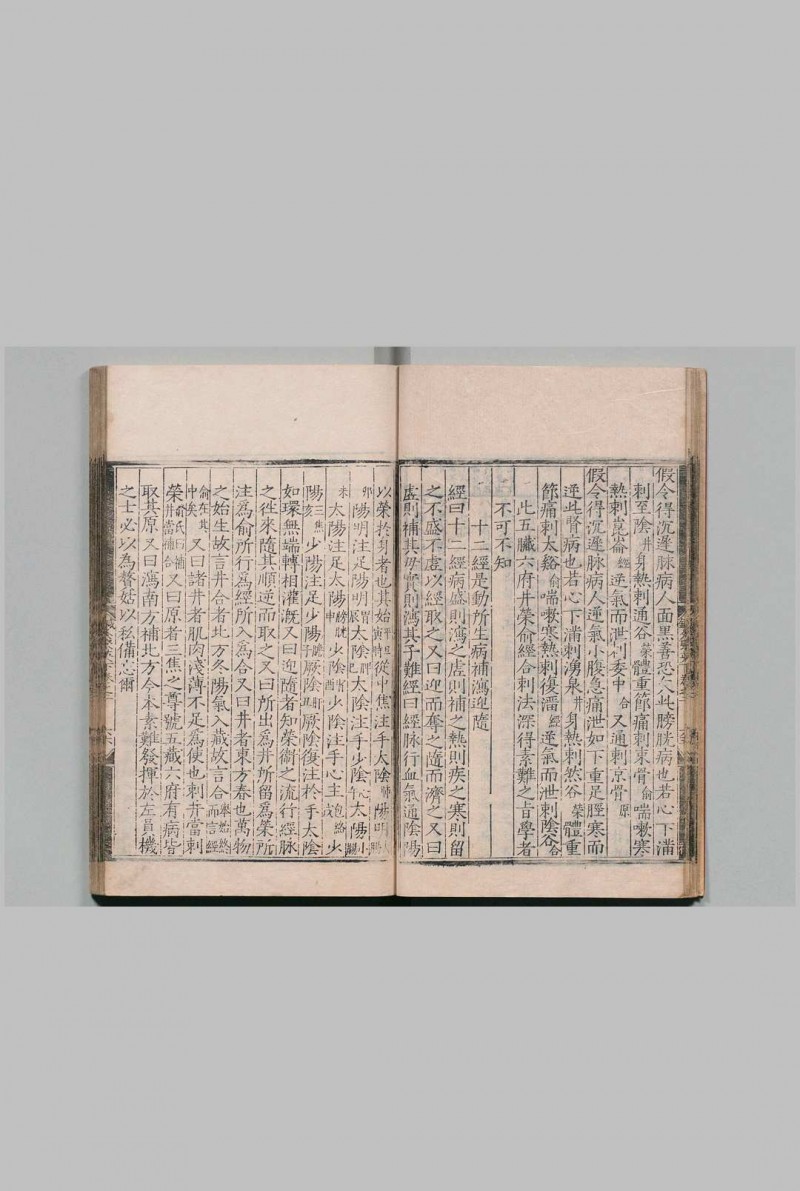 假令得沉遲脉病人面黒善恐欠此膀胱病也若心下滿
刺至隂井身熱刺通谷榮體重節痛刺束骨俞喘嗽寒
熱刺崑崙經逆氣而泄刺委中合又通刺京骨原
假令得沉遲脉病人逆氣小腹急痛泄如下重足脛寒而
逆此腎病也若心下滿刺湧泉井身熱刺然谷榮體重
節痛刺太谿俞喘嗽寒熱刺復溜經逆氣而泄刺隂谷合
此五臟六府井榮俞經合刺法深得素難之旨學者
不可不知
十二經是動所生病補瀉迎隨
經曰十二經病盛則瀉之虛則補之熱則疾之寒則留
之不盛不虛以經取之又曰迎而奪之隨而濟之又曰
虛則補其母實則瀉其子難經曰經脉行血氣通隂陽
以榮於身者也其始平旦寅時從中焦注手太隂肺陽明大腸
卯陽明注足陽明胃辰太隂脾巳太隂注手少隂心午太陽小腸
未太陽注足太陽膀胱申少隂腎酉少隂注手心主包絡戌少
陽三焦亥少陽注足少陽膽子厥隂肝丑厥隂復注於手太隂
如環無端轉相灌溉又曰迎隨者知榮衞之流行經脉
之往來隨其順逆而取之又曰所出爲井所留爲榮所
注爲俞所行爲經所入爲合又曰井者東方春也萬物
之始生故言井合者北方冬陽氣入藏故言合舉始終而言經
俞在其中矣又曰諸井者肌肉淺薄不足爲使也刺井當刺
榮滑氏曰補井當補合又曰原者三焦之尊號五藏六府有病皆
取其原又曰瀉南方補北方今本素難發揮於左員機
之士必以爲贅姑以私備忘爾